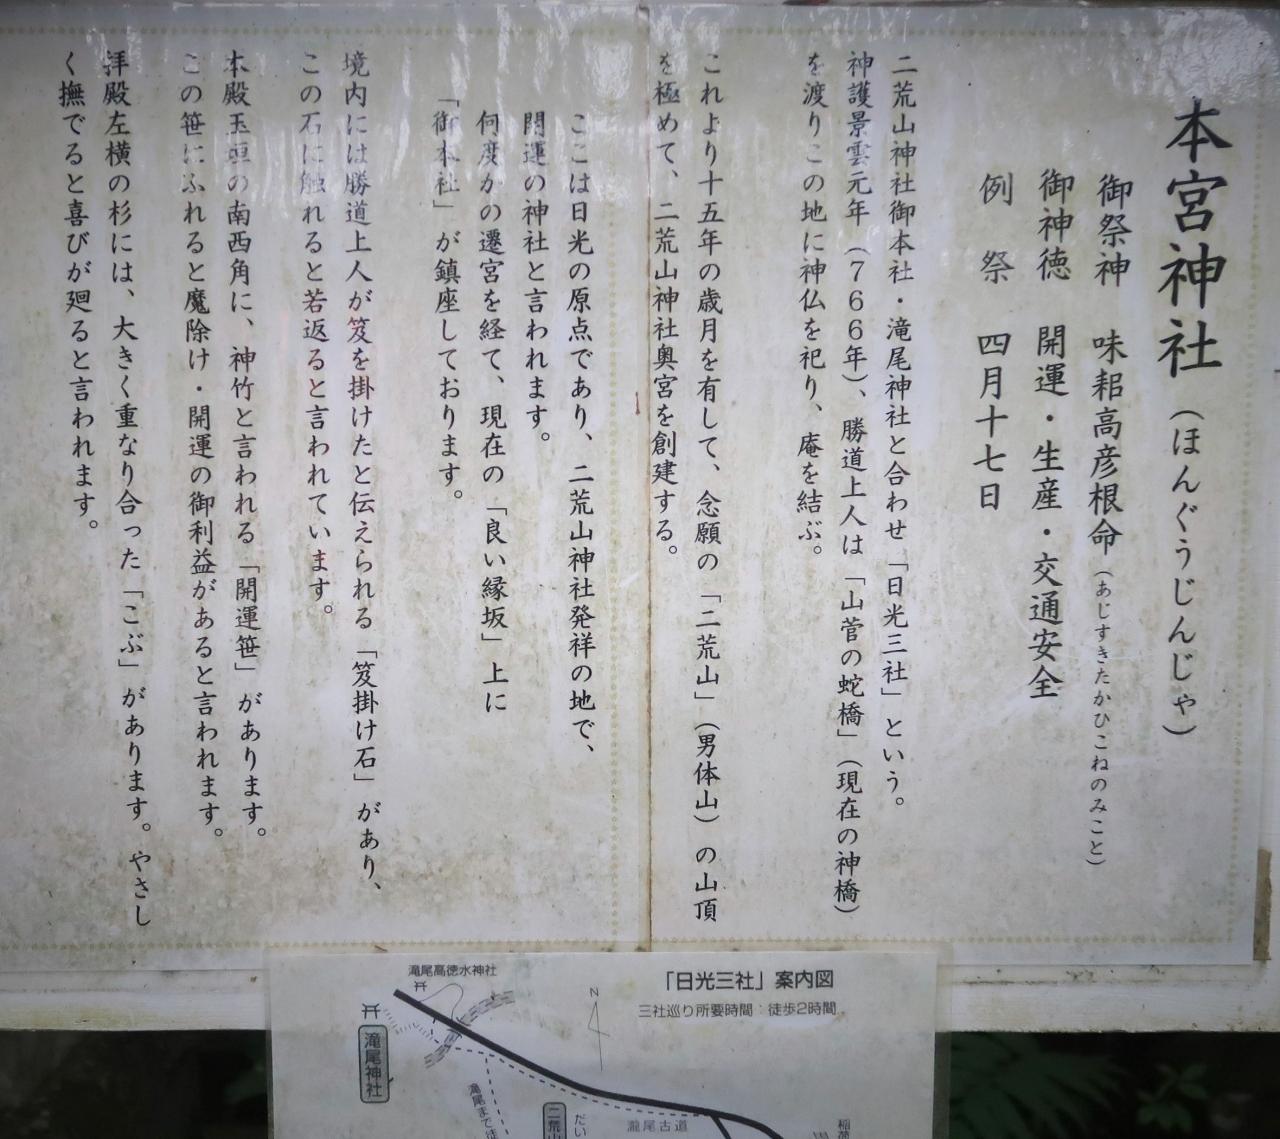 本宮神社（ほんぐうじんじゃ）
御祭神　味耜高彦根命（あじすきたかひこねのみこと）
御神徳　開運・生産・交通安全
例　祭　四月十七日
二荒山神社御本社・滝尾神社と合わせ「日光三社」という。
神護景雲元年（７６６年）、勝道上人は「山菅の蛇橋」（現在の神橋）
を渡りこの地に神仏を祀り、庵を結ぶ。
これより十五年の歳月を有して、念願の「二荒山」（男体山）の山頂
を極めて、二荒山神社奥宮を創建する。
ここは日光の原点であり、二荒山神社発祥の地で、
開運の神社と言われます。
何度かの遷宮を経て、現在の「良い縁坂」上に
「御本社」が鎮座しております。
境内には勝道上人が笈を掛けたと伝えられる「笈掛け石」があり、
この石に触れると若返ると言われています。
本殿玉垣の南西角に、神竹と言われる「開運笹」があります。
この笹にふれると魔除け・開運の御利益があると言われます。
拝殿左横の杉には、大きく重なり合った「こぶ」があります。やさし
く撫でると喜びが廻ると言われます。
「日光三社」案内図
三社巡り所要時間：徒歩2時間
滝尾高徳水神社
N
滝尾神社
滝尾まで徒
二荒山
だい
瀧尾古道
稲荷